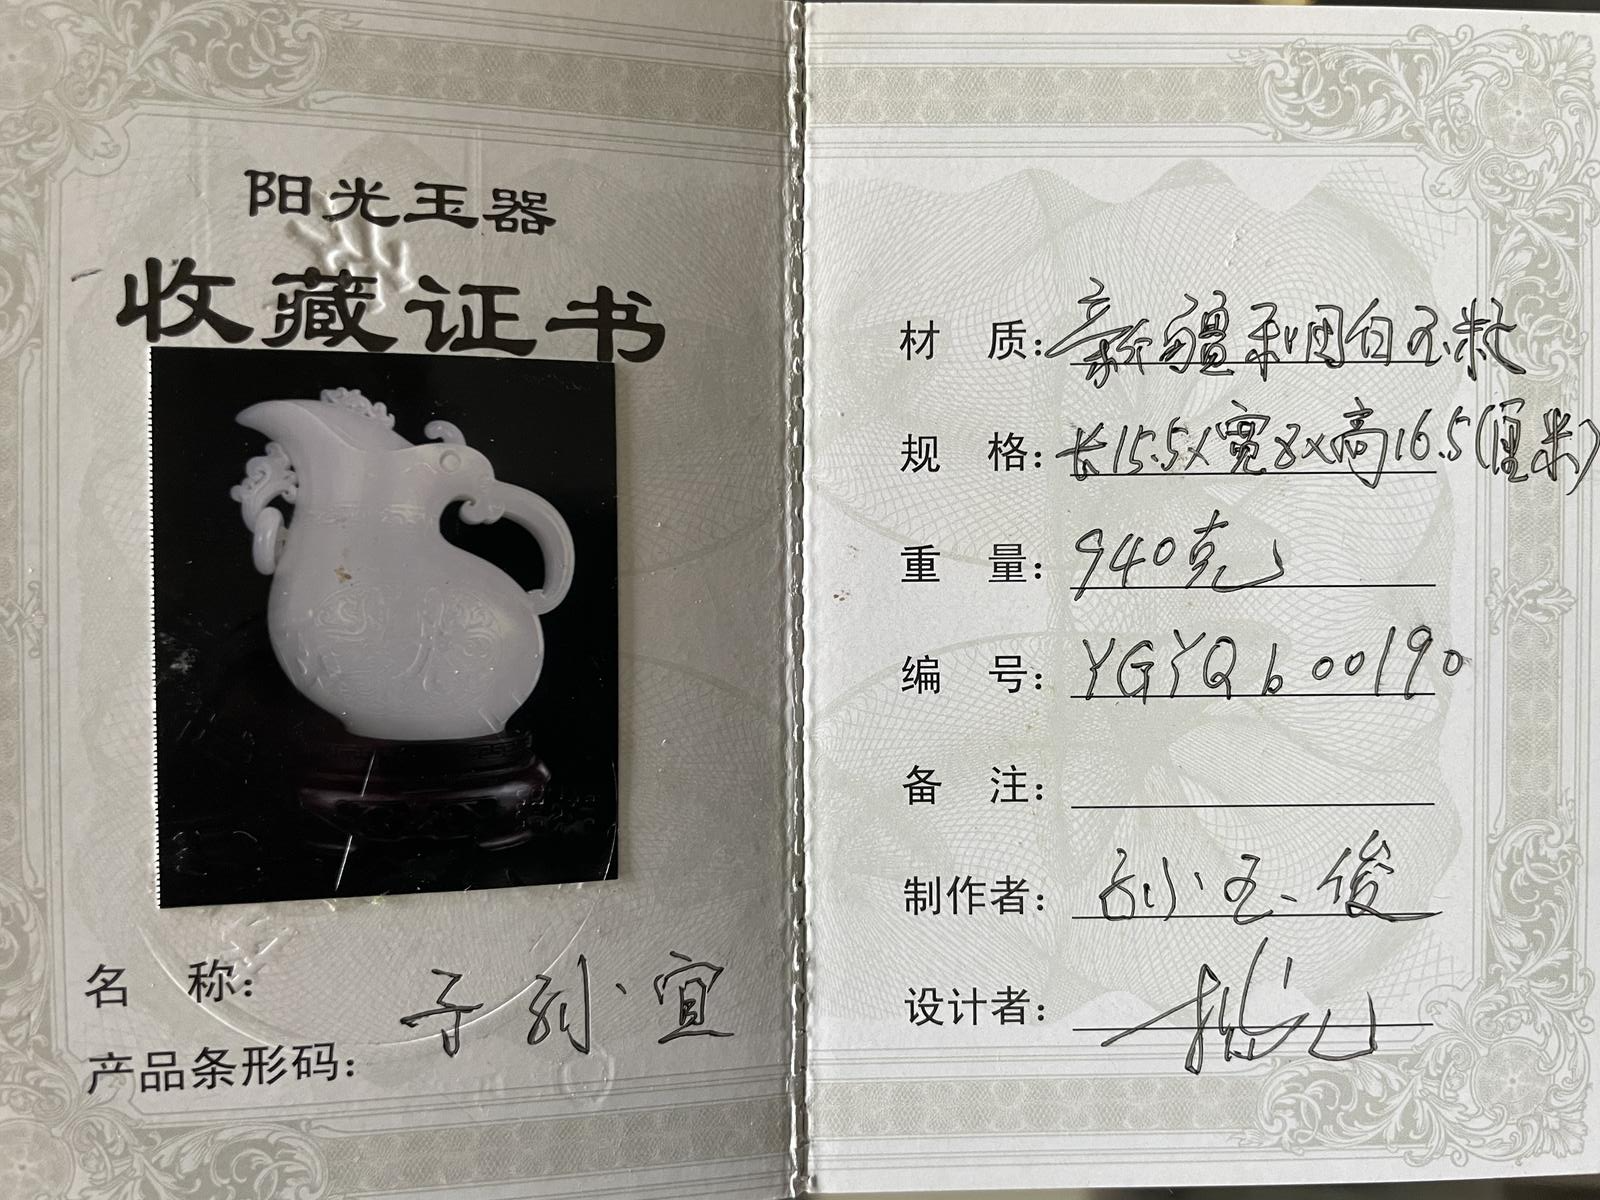 阳光玉器
收藏证书
名 称: 子孙宜
产品条形码:
材 质: 新疆和田白玉籽
规 格: 长15.5×宽8×高16.5(厘米)
重 量: 940克
编 号: YGYQb00190
备 注:
制作者: 孙玉俊
设计者: